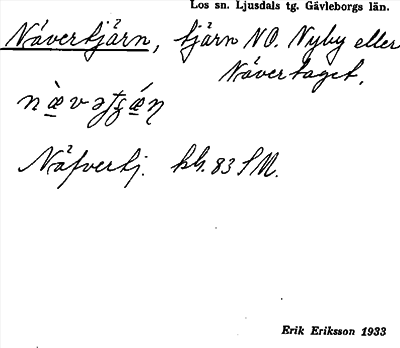 Los sn. Ljusdals tg. Gävleborgs län.
Nåvertjärn, tjärn NO. Nyby eller
Nåvertaget.
Nåfvertj. kbl. 83 SM.
Erik Eriksson 1933